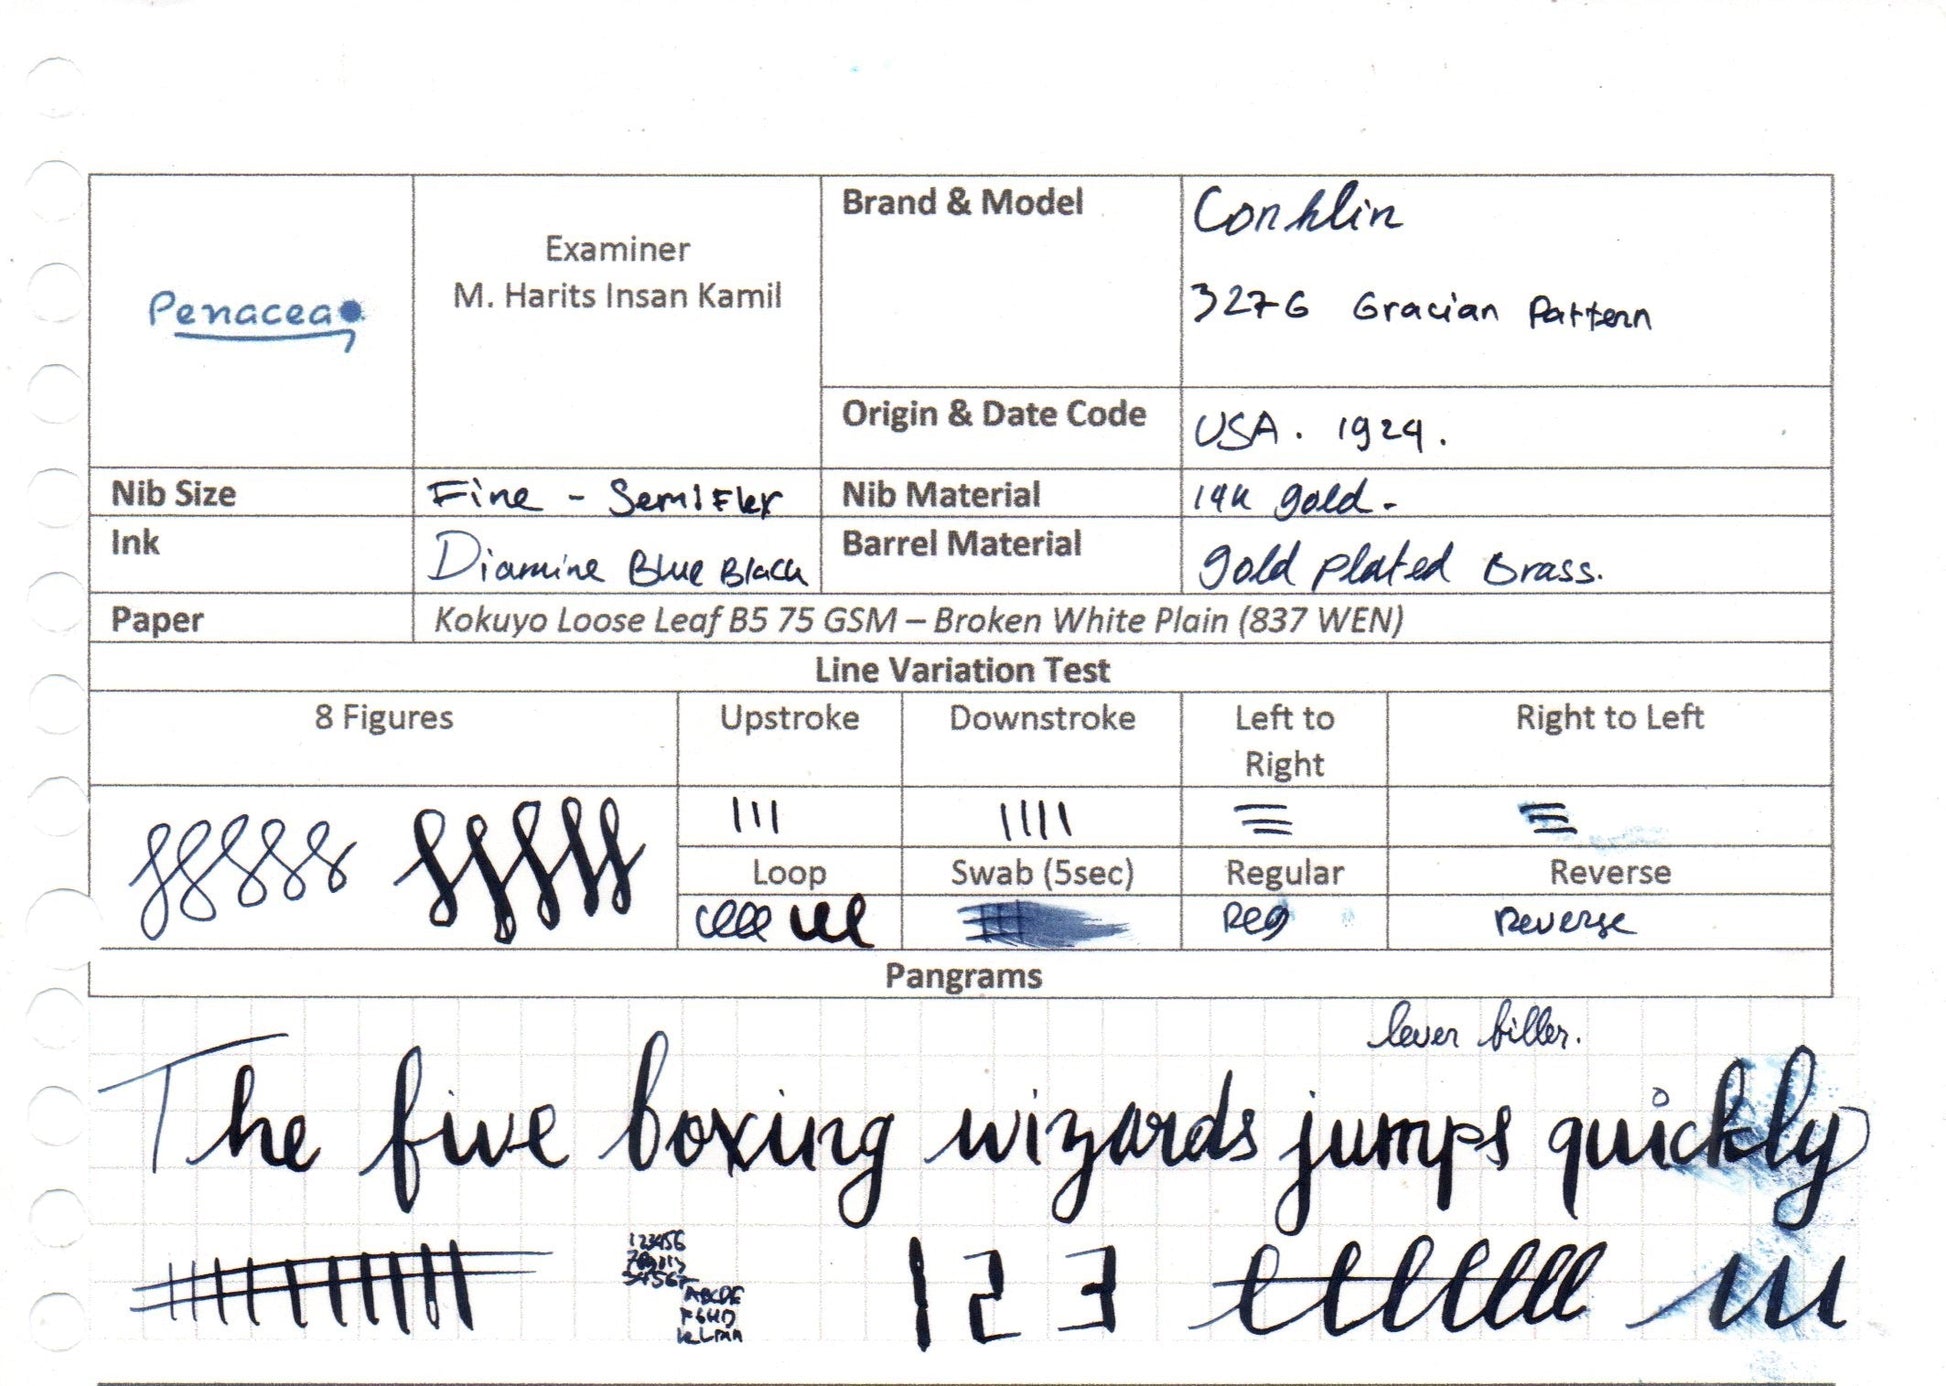 Penacea
Examiner
M. Harits Insan Kamil
Brand & Model
Conklin
327G Gracian Pattern
Origin & Date Code
USA. 1924.
Nib Size
Fine - Semi Flex
Nib Material
14K gold-
Ink
Diamine Blue Black
Barrel Material
gold plated Brass.
Paper
Kokuyo Loose Leaf B5 75 GSM – Broken White Plain (837 WEN)
Line Variation Test
8 Figures
Upstroke
Downstroke
Left to
Right
Right to Left
Loop
Swab (5sec)
Regular
Reverse
Reg
Reverse
Pangrams
lever filler.
The five boxing wizards jumps quickly
123456
34567
ABCDE
FGHD
KLMN
1 2 3